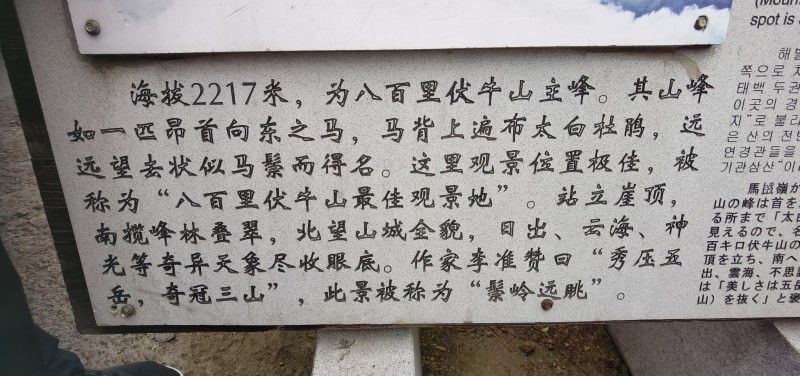 海拔2217米，为八百里伏牛山主峰。其山峰
如一匹昂首向东之马，马背上遍布太白杜鹃，远
远望去状似马鬃而得名。这里观景位置极佳，被
称为“八百里伏牛山最佳观景地”。站立崖顶，
南揽峰林叠翠，北望山城全貌，日出、云海、神
光等奇异天象尽收眼底。作家李准赞曰“秀压五
岳，奇冠三山”，此景被称为“鬃岭远眺”。
(Moun
spot is a
해발
쪽으로 자
태백 두견
이곳의 경
지”로 불리
은 산의 전반
연경관들을
기관삼산”이
山の峰は首を
る所まで「太白
見えるので、名
百キロ伏牛山の
頂を立ち、南へ
出、雲海、不思
は「美しさは五岳
山）を抜く」と褒